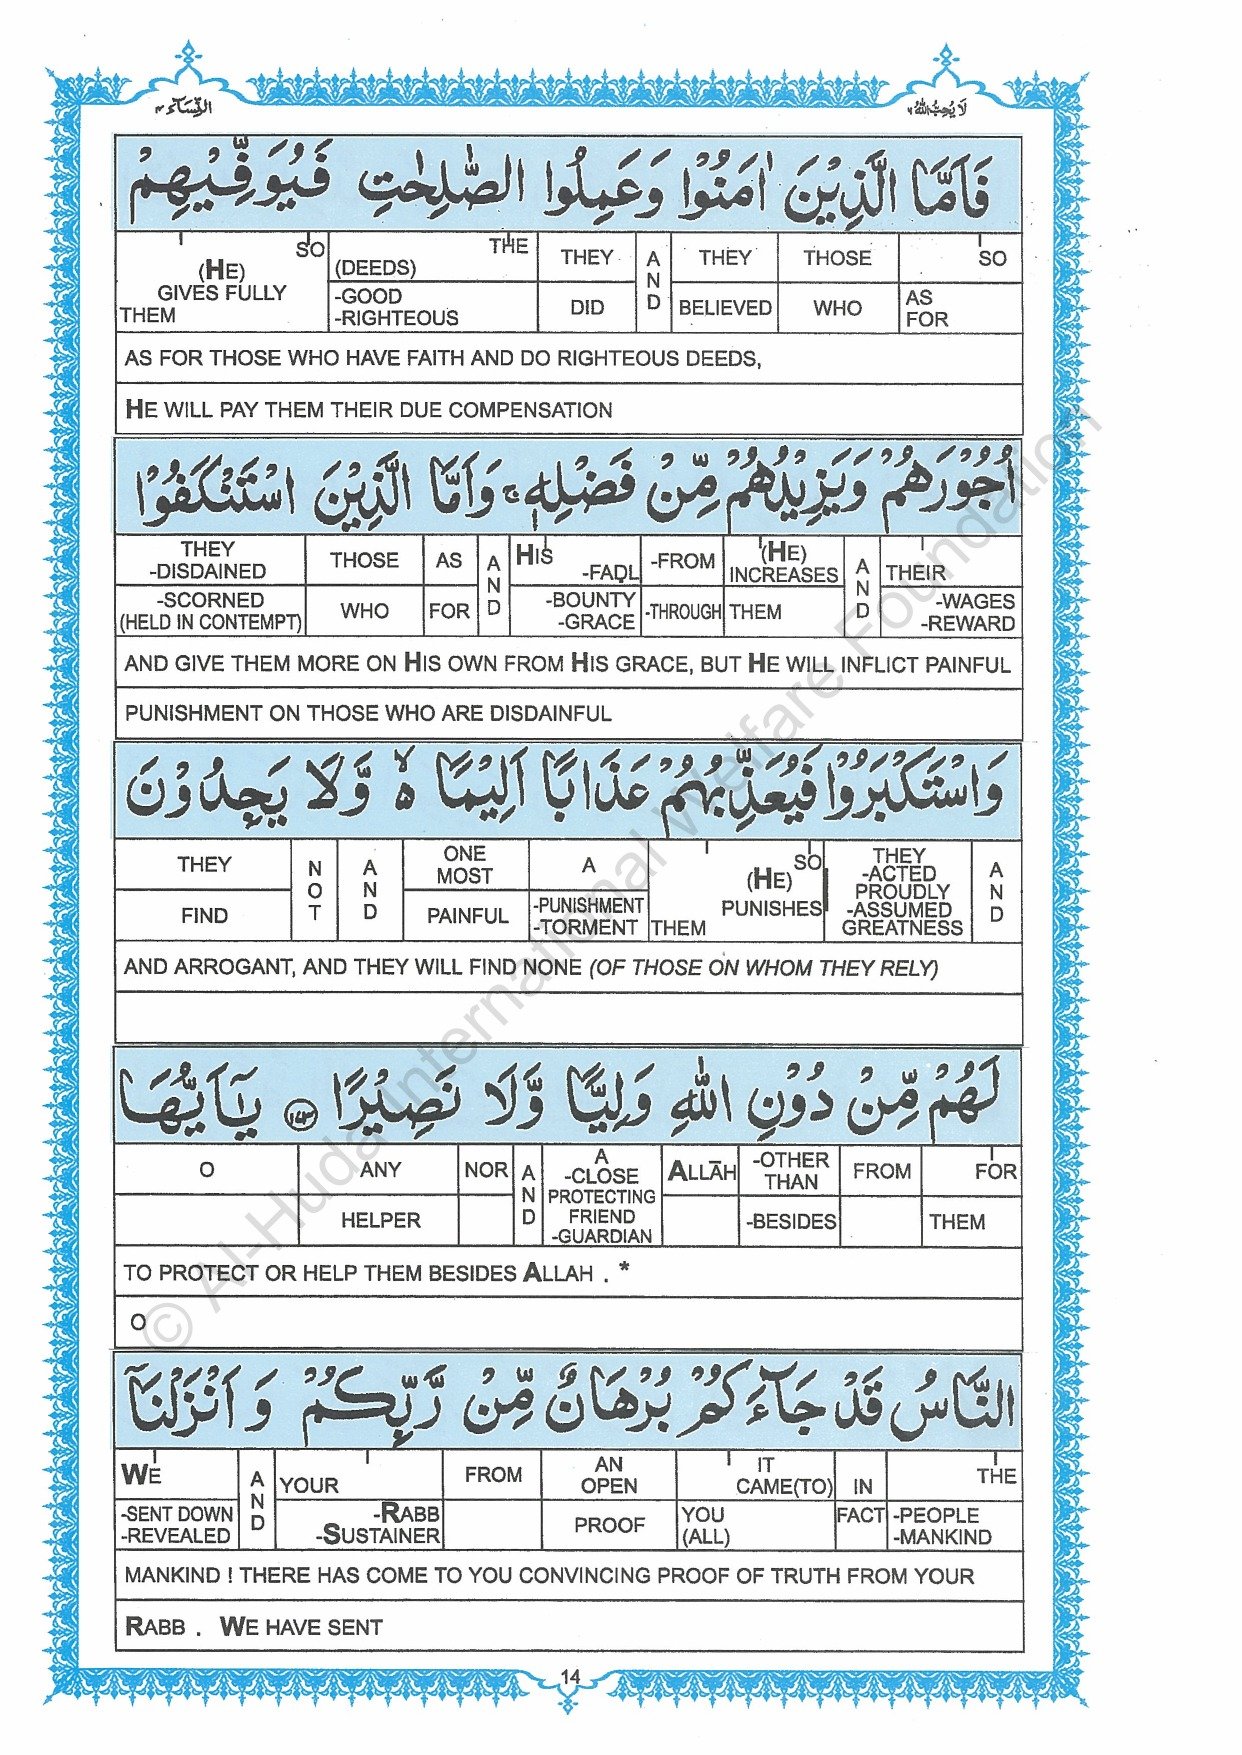 النِّسَآء ٤
لَا يُحِبُّ اللّٰهُ ٦
فَاَمَّا الَّذِيْنَ اٰمَنُوْا وَعَمِلُوا الصّٰلِحٰتِ فَيُوَفِّيْهِمْ
SO (HE) GIVES FULLY THEM | THE (DEEDS) -GOOD -RIGHTEOUS | THEY DID | AND | THEY BELIEVED | THOSE WHO | SO AS FOR
AS FOR THOSE WHO HAVE FAITH AND DO RIGHTEOUS DEEDS,
HE WILL PAY THEM THEIR DUE COMPENSATION
اُجُوْرَهُمْ وَيَزِيْدُهُمْ مِّنْ فَضْلِهٖ ۚ وَاَمَّا الَّذِيْنَ اسْتَنْكَفُوْا
THEY -DISDAINED -SCORNED (HELD IN CONTEMPT) | THOSE WHO | AS FOR | AND | HIS -FAḌL -BOUNTY -GRACE | -FROM -THROUGH | (HE) INCREASES THEM | AND | THEIR -WAGES -REWARD
AND GIVE THEM MORE ON HIS OWN FROM HIS GRACE, BUT HE WILL INFLICT PAINFUL
PUNISHMENT ON THOSE WHO ARE DISDAINFUL
وَاسْتَكْبَرُوْا فَيُعَذِّبُهُمْ عَذَابًا اَلِيْمًا ۙ۬ وَّلَا يَجِدُوْنَ
THEY FIND | NOT | AND | ONE MOST PAINFUL | A -PUNISHMENT -TORMENT | SO (HE) PUNISHES THEM | THEY -ACTED PROUDLY -ASSUMED GREATNESS | AND
AND ARROGANT, AND THEY WILL FIND NONE (OF THOSE ON WHOM THEY RELY)
لَهُمْ مِّنْ دُوْنِ اللّٰهِ وَلِيًّا وَّلَا نَصِيْرًا ﴿۱۷۳﴾ يٰۤاَيُّهَا
O | ANY HELPER | NOR | AND | A -CLOSE PROTECTING FRIEND -GUARDIAN | ALLĀH | -OTHER THAN -BESIDES | FROM | FOR THEM
TO PROTECT OR HELP THEM BESIDES ALLAH . *
O
النَّاسُ قَدْ جَآءَكُمْ بُرْهَانٌ مِّنْ رَّبِّكُمْ وَ اَنْزَلْنَاۤ
WE -SENT DOWN -REVEALED | AND | YOUR -RABB -SUSTAINER | FROM | AN OPEN PROOF | IT CAME(TO) YOU (ALL) | IN FACT | THE -PEOPLE -MANKIND
MANKIND ! THERE HAS COME TO YOU CONVINCING PROOF OF TRUTH FROM YOUR
RABB . WE HAVE SENT
14
© Al-Huda International Welfare Foundation